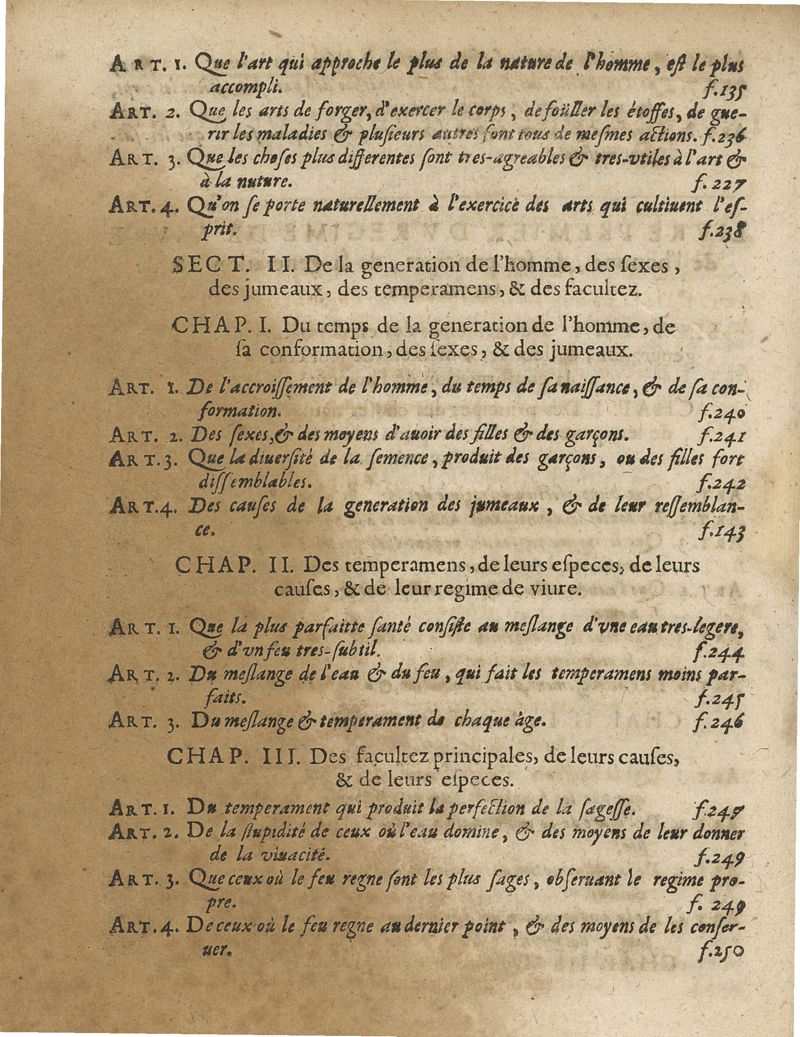 ART. 1. Que l'art qui approche le plus de la nature de l'homme, eſt le plus
accompli. f.135
ART. 2. Que les arts de forger, d'exercer le corps, de foüller les étoffes, de gue-
rir les maladies & pluſieurs autres ſont tous de meſmes actions. f.236
ART. 3. Que les choſes plus differentes ſont tres-agreables & tres-vtiles à l'art &
à la nuture. f. 227
ART. 4. Qu'on ſe porte naturellement à l'exercice des arts qui cultiuent l'eſ-
prit. f.238
SECT. II. De la generation de l'homme, des ſexes,
des jumeaux, des temperamens, & des facultez.
CHAP. I. Du temps de la generation de l'homme, de
ſa conformation, des ſexes, & des jumeaux.
ART. 1. De l'accroiſſement de l'homme, du temps de ſa naiſſance, & de ſa con-
formation. f.240
ART. 2. Des ſexes, & des moyens d'auoir des filles & des garçons. f.241
ART. 3. Que la diuerſité de la ſemence, produit des garçons, ou des filles fort
diſſemblables. f.242
ART. 4. Des cauſes de la generation des jumeaux, & de leur reſſemblan-
ce. f.143
CHAP. II. Des temperamens, de leurs eſpeces, de leurs
cauſes, & de leur regime de viure.
ART. 1. Que la plus parfaitte ſanté conſiſte au meſlange d'vne eau tres-legere,
& d'vn feu tres-ſubtil. f.244
ART. 2. Du meſlange de l'eau & du feu, qui fait les temperamens moins par-
faits. f.245
ART. 3. Du meſlange & temperament de chaque àge. f.246
CHAP. III. Des facultez principales, de leurs cauſes,
& de leurs eſpeces.
ART. 1. Du temperament qui produit la perfection de la ſageſſe. f.247
ART. 2. De la ſtupidité de ceux où l'eau domine, & des moyens de leur donner
de la viuacité. f.249
ART. 3. Que ceux où le feu regne ſont les plus ſages, obſeruant le regime pro-
pre. f. 249
ART. 4. De ceux où le feu regne au dernier point, & des moyens de les conſer-
uer. f.250